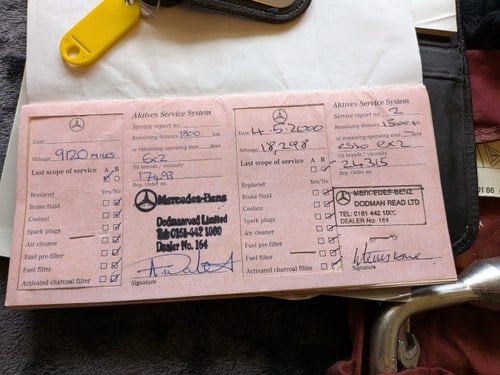 Aktives Service System
Service report no.
Date:
Remaining distance 1800 km
Mileage: 9120 MILES
or remaining operating time days
Oil brands / viscosity
Last scope of service A B
17693
Rep. Order nr.
Replaced Yes/No
Brake fluid
Coolant
Spark plugs
Air cleaner
Fuel pre-filter
Fuel filter
Activated charcoal filter
Mercedes-Benz
Dodmanread Limited
Tel: 0161-442 1000
Dealer No. 164
Signature
Aktives Service System
Service report no. 2
Date: 4.5.2000
Remaining distance 1500 km
Mileage: 18,298
or remaining operating time days
Esso
Oil brands / viscosity
Last scope of service A B
24315
Rep. Order nr.
Replaced Yes/No
Brake fluid
Coolant
Spark plugs
Air cleaner
Fuel pre-filter
Fuel filter
Activated charcoal filter
MERCEDES BENZ
DODMAN READ LTD
TEL: 0161 442 1000
DEALER No: 164
Signature